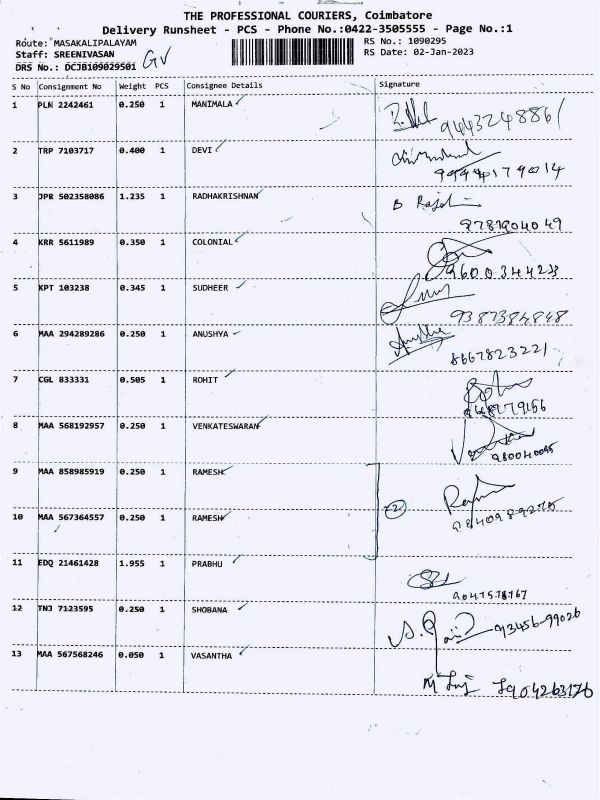 THE PROFESSIONAL COURIERS, Coimbatore
Delivery Runsheet - PCS - Phone No.:0422-3505555 - Page No.:1
Route: MASAKALIPALAYAM
Staff: SREENIVASAN
DRS No.: DCJB109029501 GV
RS No.: 1090295
RS Date: 02-Jan-2023
S No Consignment No Weight PCS Consignee Details Signature
1 PLN 2242461 0.250 1 MANIMALA
9443248861
2 TRP 7103717 0.400 1 DEVI
9994179014
3 JPR 502358086 1.235 1 RADHAKRISHNAN
9787904049
4 KRR 5611989 0.350 1 COLONIAL
9600344233
5 KPT 103238 0.345 1 SUDHEER
9387384848
6 MAA 294289286 0.250 1 ANUSHYA
8667823221
7 CGL 833331 0.505 1 ROHIT
8 MAA 568192957 0.250 1 VENKATESWARAN
9 MAA 858985919 0.250 1 RAMESH
2
10 MAA 567364557 0.250 1 RAMESH
11 EDQ 21461428 1.955 1 PRABHU
12 TNJ 7123595 0.250 1 SHOBANA
93456-99026
13 MAA 567568246 0.050 1 VASANTHA
7904263176